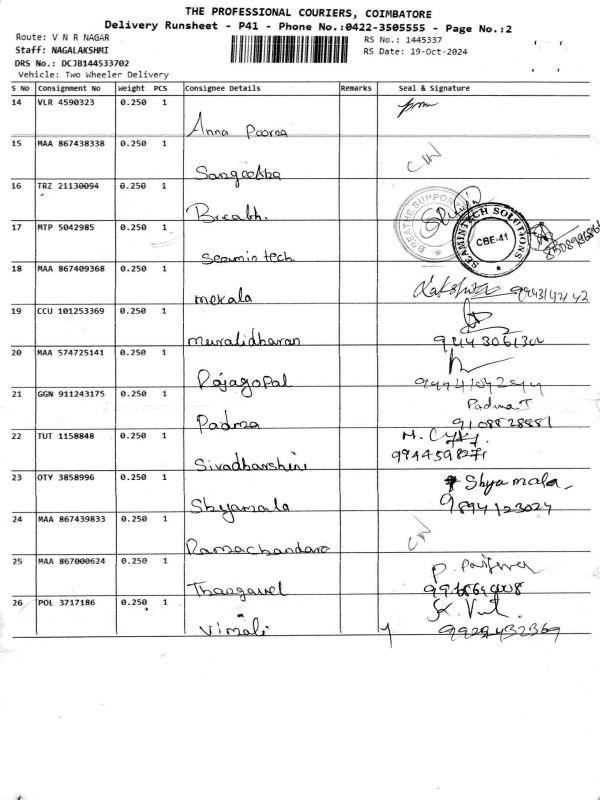 THE PROFESSIONAL COURIERS, COIMBATORE
Delivery Runsheet - P41 - Phone No.:0422-3505555 - Page No.:2
Route: V N R NAGAR
RS No.: 1445337
Staff: NAGALAKSHMI
RS Date: 19-Oct-2024
DRS No.: DCJB144533702
Vehicle: Two Wheeler Delivery
S No Consignment No Weight PCS Consignee Details Remarks Seal & Signature
14 VLR 4590323 0.250 1
Anna Poorna
15 MAA 867438338 0.250 1
Sangeetha
16 TRZ 21130094 0.250 1
Breath.
BREATHE SUPPO
17 MTP 5042985 0.250 1
Seamin tech
SEAMINTECH SOLUTIONS
CBE-41
18 MAA 867409368 0.250 1
mekala
19 CCU 101253369 0.250 1
muralidharan
20 MAA 574725141 0.250 1
Rajagopal
21 GGN 911243175 0.250 1
Padma T
Padma
9108828881
22 TUT 1158848 0.250 1
Sivadharshini
23 OTY 3858996 0.250 1
Shyamala
Shyamala
9894123024
24 MAA 867439833 0.250 1
25 MAA 867000624 0.250 1
Thangavel
26 POL 3717186 0.250 1
Vimali